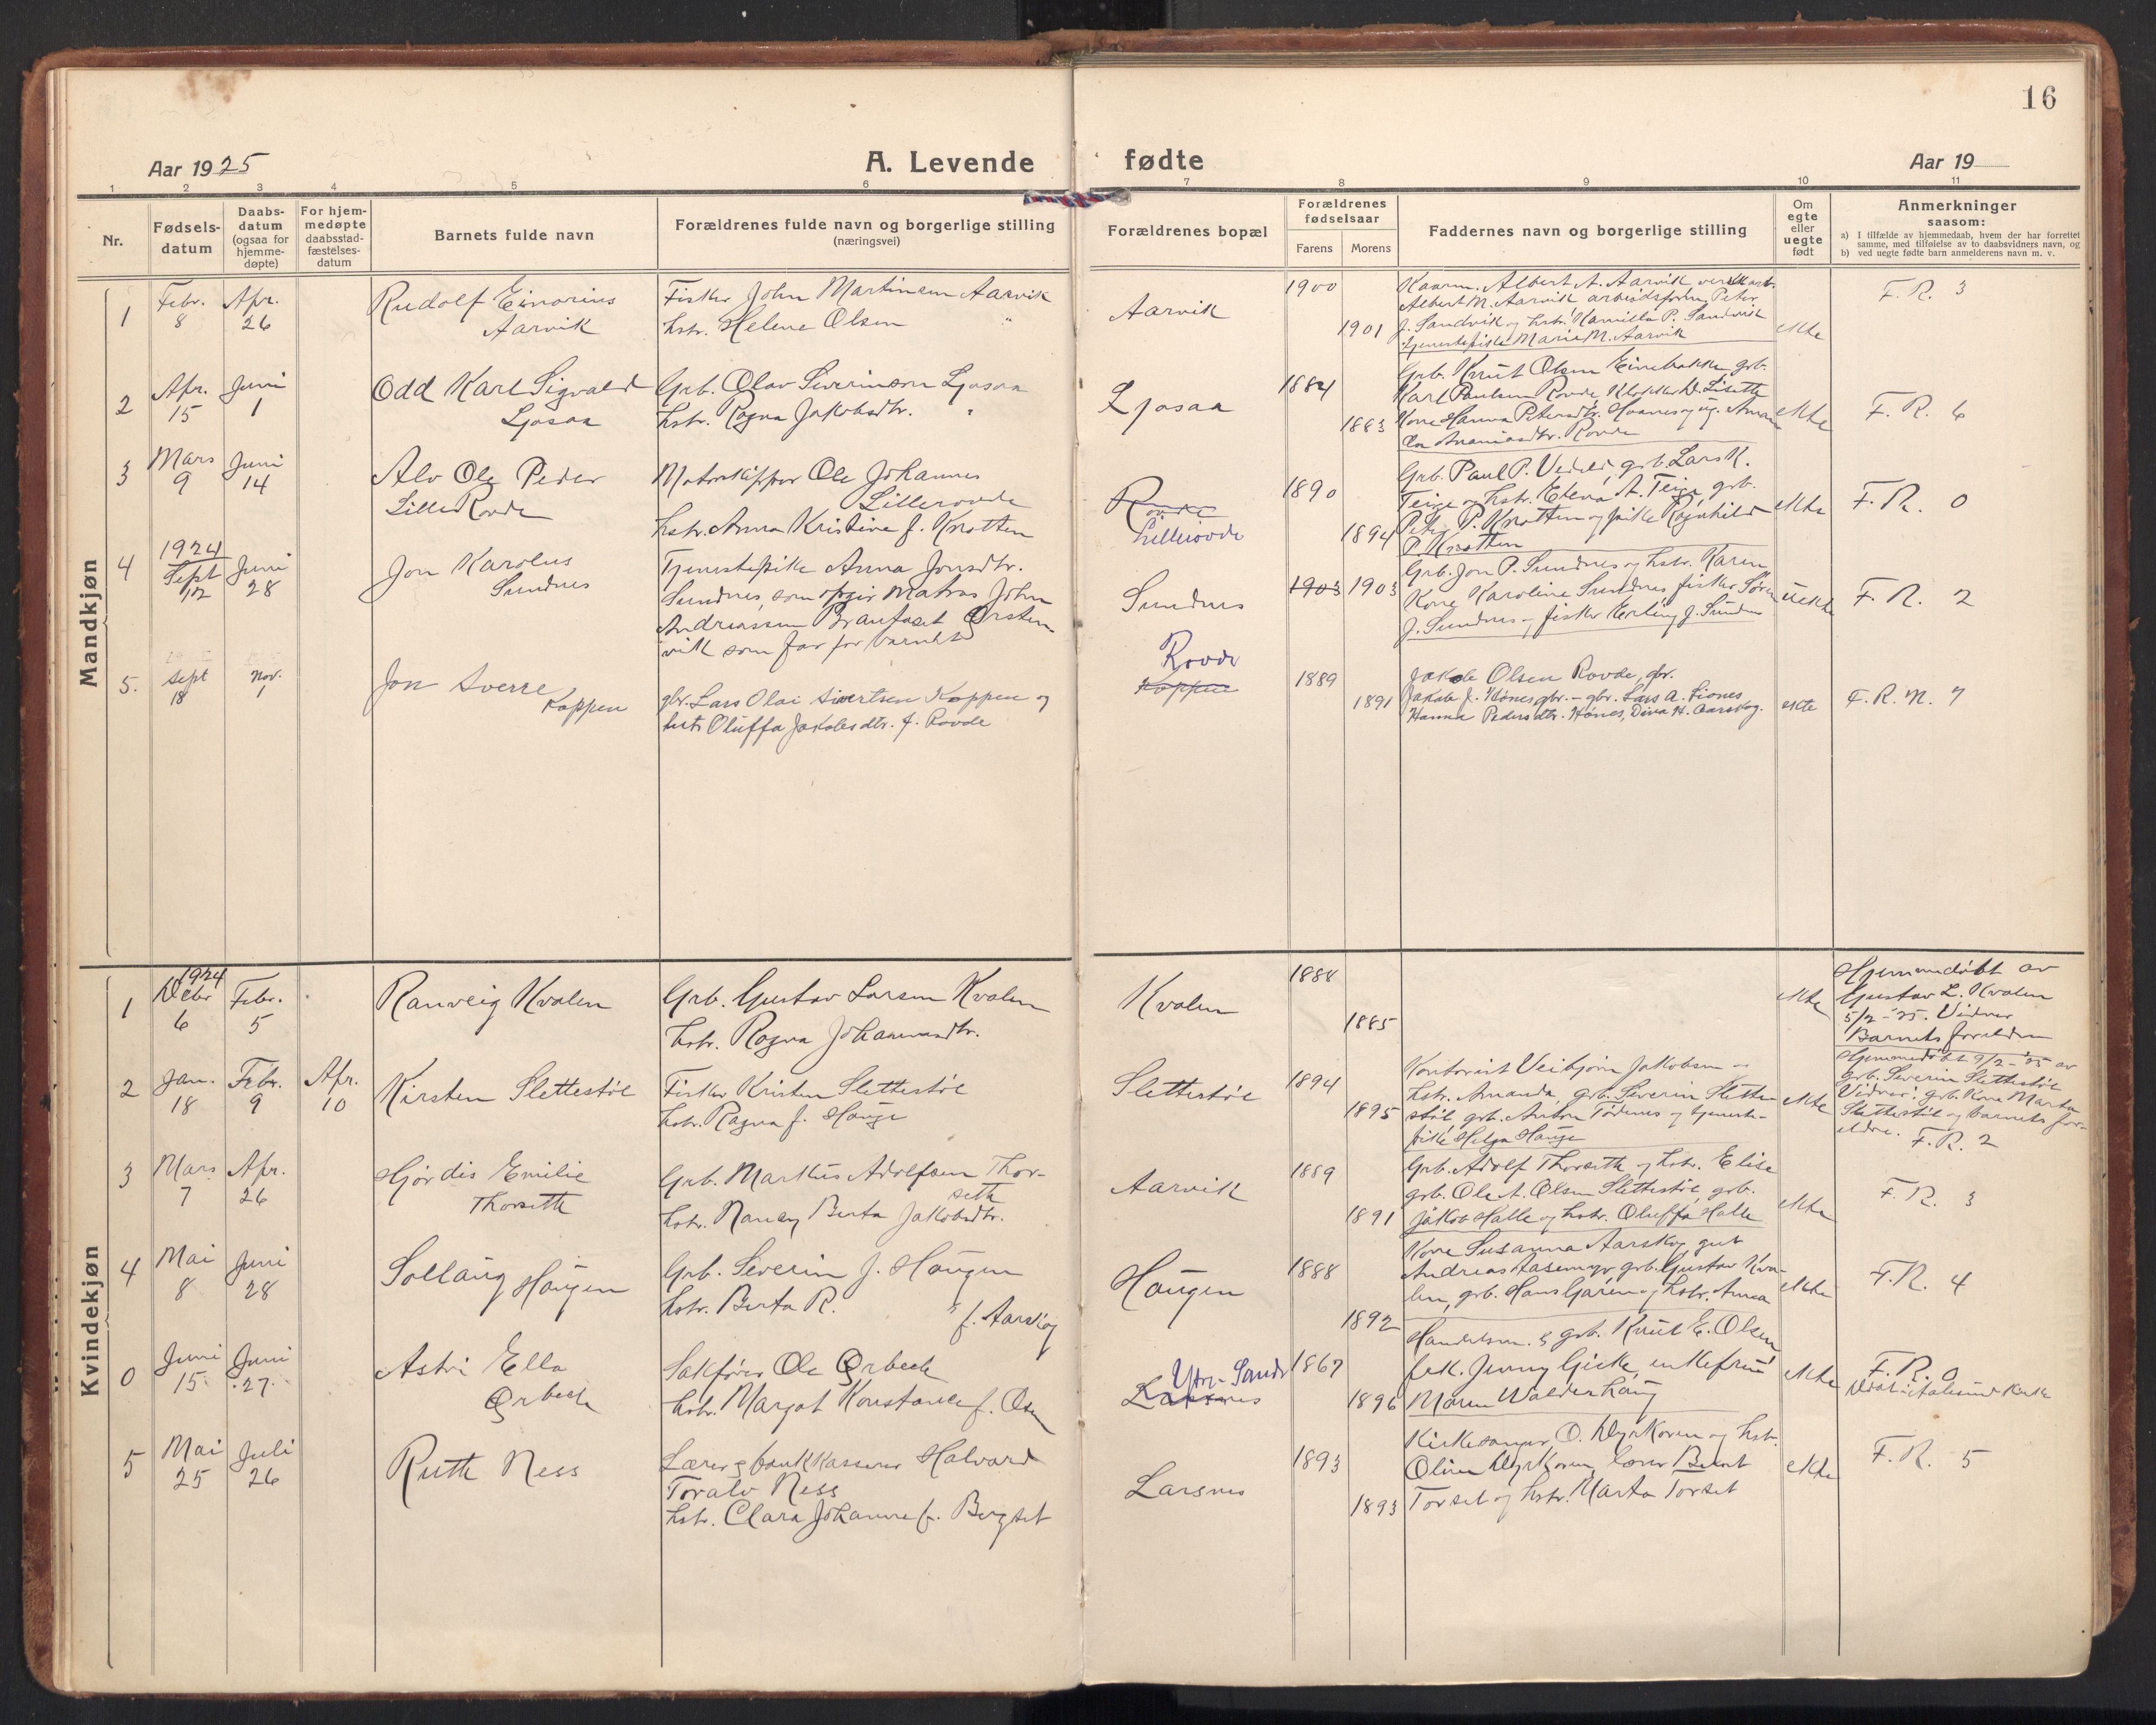 16
Aar 1925
A. Levende fødte
Aar 19
1 2 3 4 5 6 7 8 9 10 11
Nr.
Fødsels-
datum
Daabs-
datum
(ogsaa for
hjemme-
døpte)
For hjem-
medøpte
daabsstad-
fæstelses-
datum
Barnets fulde navn
Forældrenes fulde navn og borgerlige stilling
(næringsvei)
Forældrenes bopæl
Forældrenes
fødselsaar
Farens Morens
Faddernes navn og borgerlige stilling
Om
egte
eller
uegte
født
Anmerkninger
saasom:
a) I tilfælde av hjemmedaab, hvem der har forrettet
samme, med tilføielse av to daabsvidners navn, og
b) ved uegte fødte barn anmelderens navn m. v.
Mandkjøn
1
Febr.
8
Apr.
26
Rudolf Einarius
Aarvik
Fisker John Martinsen Aarvik
hstr. Helene Olsen "
Aarvik
1900
1901
Albert A. Aarvik
Albert M. Aarvik arbeidsform. Peter
J. Sandvik og hstr. Kamilla P. Sandvik
tjenestepike Marie M. Aarvik
ekte
F. R. 3
2
Apr.
15
Juni
1
Odd Karl Sigvald
Ljosaa
Grb. Olav Severinson Ljosaa
hstr. Ragna Jakobsdtr. "
Ljosaa
1884
1883
Grb. Knut Olsen Einebakke grb.
Karl Paulsen Rovde, Lisette
Kone Hanna Petersdtr.
Ananiasdtr. Rovde
ekte
F. R. 6
3
Mars
9
Juni
14
Alv Ole Peder
Lille Rovde
Motorskipper Ole Johannes
Lillerovde
hstr. Anna Kristine f. Knotten
Rovde
Lillerovde
1890
1894
Grb. Paul P. Vedeld, grb. Lars K.
Teige og hstr. Elena A. Teige, grb.
Peter P. Knotten og pike Ragnhild
P. Knotten
ekte
F. R. 0
4
1924
Sept
12
Juni
28
Jon Karolus
Sundnes
Tjenestepike Anna Jonsdtr.
Sundnes, som opgir Matros John
Andreassen Brautaset Ørsten-
vik som far for barnet
Sundnes
1903 1903
Grb. Jon P. Sundnes og hstr. Karen
Kone Karoline Sundnes, fisker Søren
J. Sundnes og fisker Erling J. Sundnes
uekte
F. R. 2
5.
Sept
18
Nov.
1
Jon Sverre
Koppen
gbr. Lars Olai Sivertsen Koppen og
hustr. Oluffa Jakobsdtr. f. Rovde
Rovde
Koppen
1889
1891
Jakob Olsen Rovde, gbr.
Jakob J. Hønes gbr. – gbr. Lars A. Fiones
Hanna Pedersdtr. Hønes, Dina H. Aarskog.
ekte
F. R. N. 7
Kvindekjøn
1
1924
Debr
6
Febr.
5
Ranveig Kvalen
Grb. Gustav Larsen Kvalen
hstr. Ragna Johannesdtr.
Kvalen
1888
1885
ekte
Hjemmedøbt av
Gustav L. Kvalen
5/2 - 25. Vidner
Barnets foreldre
2
Jan.
18
Febr.
9
Apr.
10
Kirsten Slettestøl
Fisker Kristen Slettestøl
hstr. Ragna f. Hauge
Slettestøl
1894
1895
Kontorist Veibjørn Jakobsen og
hstr. Amanda, grb. Severin Slette-
støl, grb. Anton Tødenes og tjeneste-
pike Helga Hauge
ekte
Hjemmedøbt 9/2 - 25 av
grb. Severin Slettestøl
Vidner: grb. Kone Marta
Slettestøl og barnets for-
eldre.
F. R. 2
3
Mars
7
Apr.
26
Hjørdis Emilie
Thorseth
Grb. Markus Adolfsen Thor-
seth
hstr. Nancy Berta Jakobsdtr.
Aarvik
1889
1891
Grb. Adolf Thorseth og hstr. Elise
grb. Ole A. Olsen Slettestøl, grb.
Jakob Halle og hstr. Oluffa Halle
ekte
F. R. 3
4
Mai
8
Juni
28
Sollaug Haugen
Grb. Severin J. Haugen
hstr. Berta R. " f. Aarskog
Haugen
1888
1892
Kone Susanna Aarskog gut
Andreas Aasemyr grb. Gustav Kva-
len, grb. Hans Garen og hstr. Anna
ekte
F. R. 4
0
Juni
15
Juni
27
Astri Ella
Ørbech
Sakfører Ole Ørbech
hstr. Margot Konstance f. Olsen
Ytre-Sande
Larsnes
1867
1896
Handelsm. & grb. Knut E. Olsen
frk. Jenny Giske, enkefru
Maren Walderhaug
ekte
F. R. 0
Døbt i Aalesund Kirke
5
Mai
25
Juli
26
Ruth Ness
Lærer & bankkasserer Halvard
Toralv Ness
hstr. Clara Johanne f. Bergset
Larsnes
1893
1893
Kirkesanger O. Dyrkoren og hstr.
Oline Dyrkoren, lærer Bernt
Torset og hstr. Marta Torset
ekte
F. R. 5